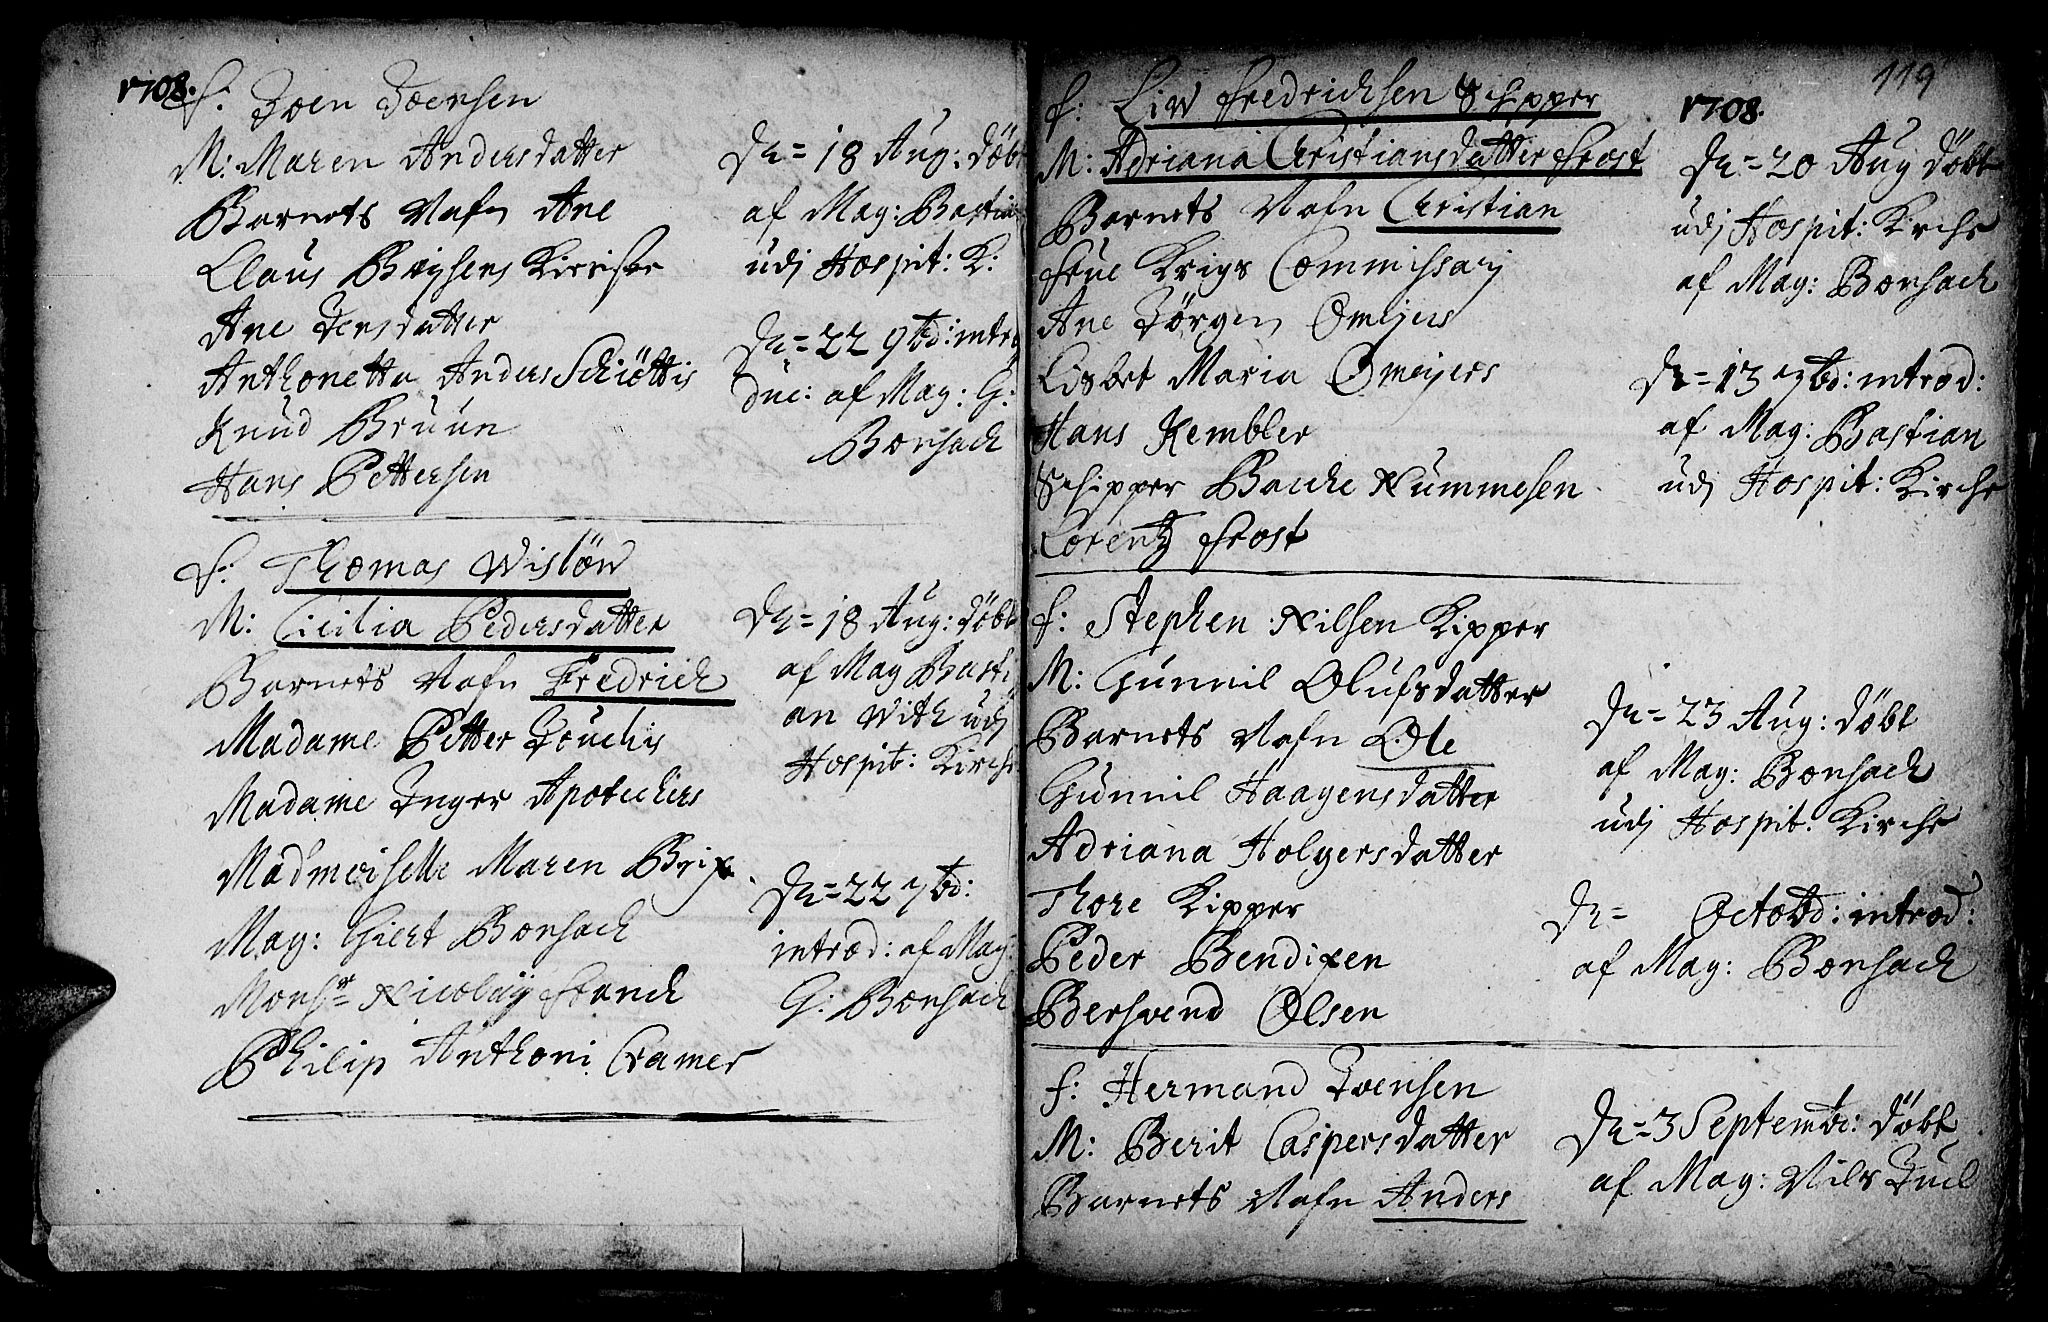 1708.
F: Joen Joensen
M: Maren Andersdatter
Barnets Nafn Ane
Claus Boysens Kierister
Ane Jensdatter
Anthonetta Anders Schiöttis
Knud Bruun
Hans Pettersen
Dn= 18 Aug: döbt
af Mag: Bastian
udj Hospit: K:
Dn= 22 9bd: intro
duc: af Mag: G:
Bonsach
F: Thomas Wislöw
M: Cicilia Pedersdatter
Barnets Nafn Fredrich
Madame Petter Douchis
Madame Inger Apotechers
Mad'moiselle Maren Brix
Mag: Giert Bonsach
Monsr= Nicolay
Philip Anthoni Cramer
Dn= 18 Aug: döbt
af Mag Basti
an With udj
Hospit: Kirche
Dn= 22 7bd:
introd: af Mag:
G: Bonsach
119
1708.
F: Liw Fredrichsen Schipper
M: Adriana Christiansdatter Frost
Barnets Nafn Christian
Frue Krigs Commissary
Ane Jörgen Omejers
Lisbet Maria Omejers
Hans Kembler
Schipper Baucke Nummesen
Lorentz Frost
Dn= 20 Aug döbt
udj Hospit: Kirche
af Mag: Bonsach
Dn= 13 7bd: introd:
af Mag: Bastian
udj Hospit: Kirche
F: Stephen Nilsen Kipper
M: Gunnil Olufsdatter
Barnets Nafn Ole
Gunnil Haagensdatter
Adriana Holgersdatter
Thore Kipper
Peder Bendixen
Berswend Olsen
Dn= 23 Aug: döbt
af Mag: Bonsach
udj Hospit: Kirche
Dn= Octobd: introd:
af Mag: Bonsach
F: Hermand Ivensen
M: Berit Caspersdatter
Barnets Nafn Anders
Dn= 3 Septembr: döbt
af Mag: Nils Juel